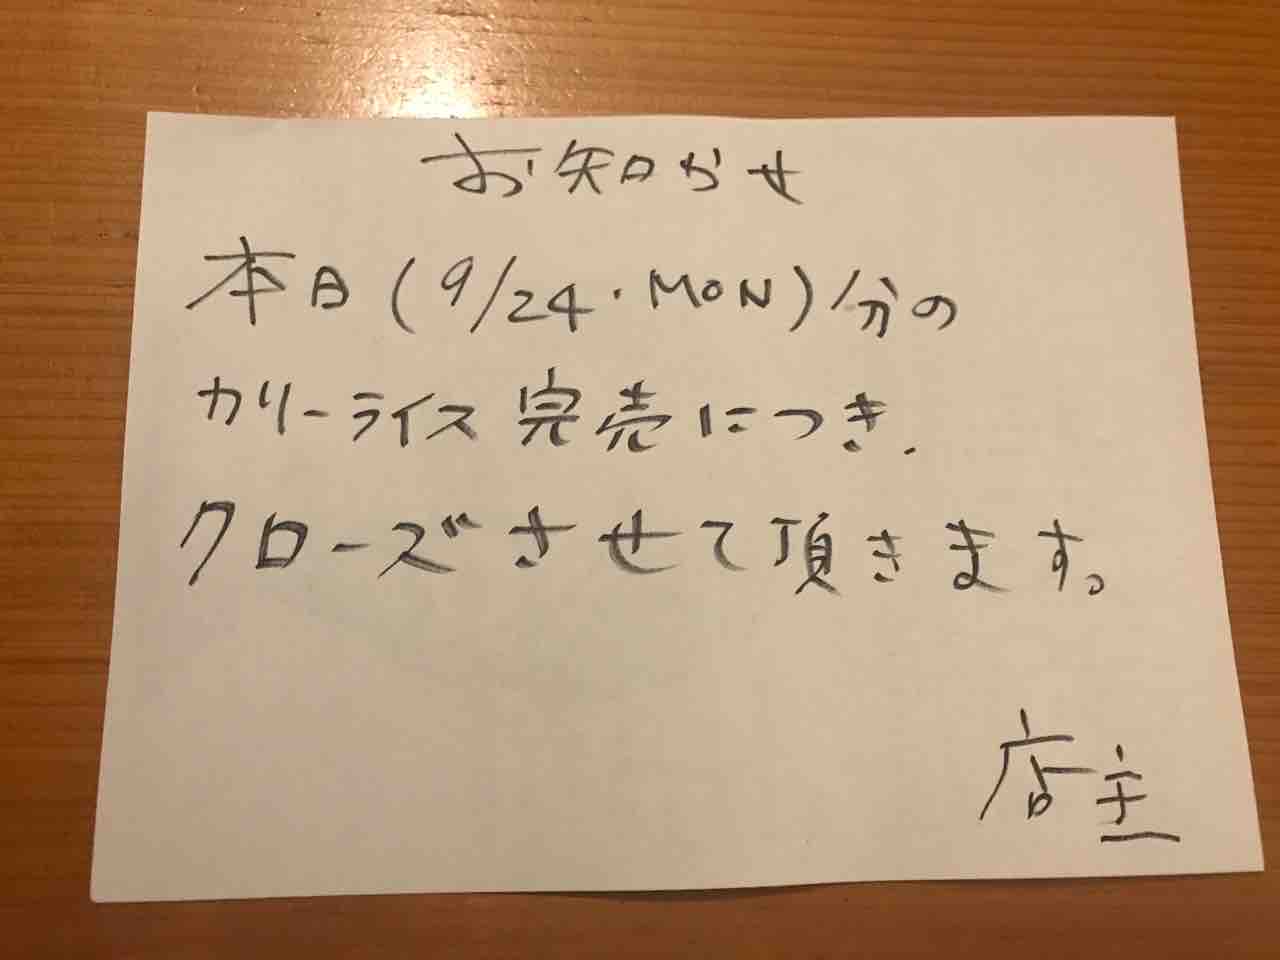 お知らせ
本日(9/24・MON)分の
カリーライス完売につき、
クローズさせて頂きます。
店主